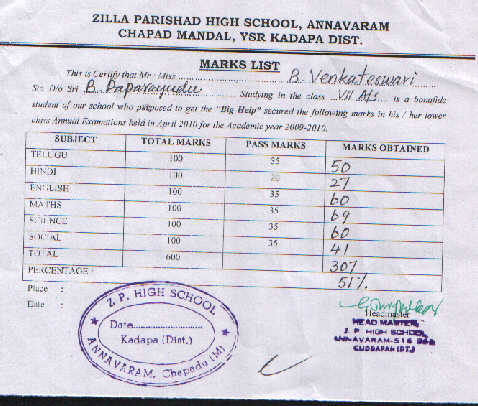 ZILLA PARISHAD HIGH SCHOOL, ANNAVARAM
CHAPAD MANDAL, YSR KADAPA DIST.
MARKS LIST
This is Certify that Mr / Miss B. Venkateswari
S/o D/o Sri B. Paparayudu Studying in the class VII is a bonafide
student of our school who proposed to get the "Big Help" secured the following marks in his / her lower
class Annual Examinations held in April 2010 for the Academic year 2009-2010.
SUBJECT TOTAL MARKS PASS MARKS MARKS OBTAINED
TELUGU 100 35 50
HINDI 100 20 27
ENGLISH 100 35 60
MATHS 100 35 69
SCIENCE 100 35 60
SOCIAL 100 35 41
TOTAL 600 307
PERCENTAGE : 51%
Place :
Date :
Z.P. HIGH SCHOOL
Date
Kadapa (Dist.)
ANNAVARAM, Chepadu (M)
Headmaster
HEAD MASTER,
Z. P. HIGH SCHOOL
ANNAVARAM-516
CUDDAPAH (DT.)